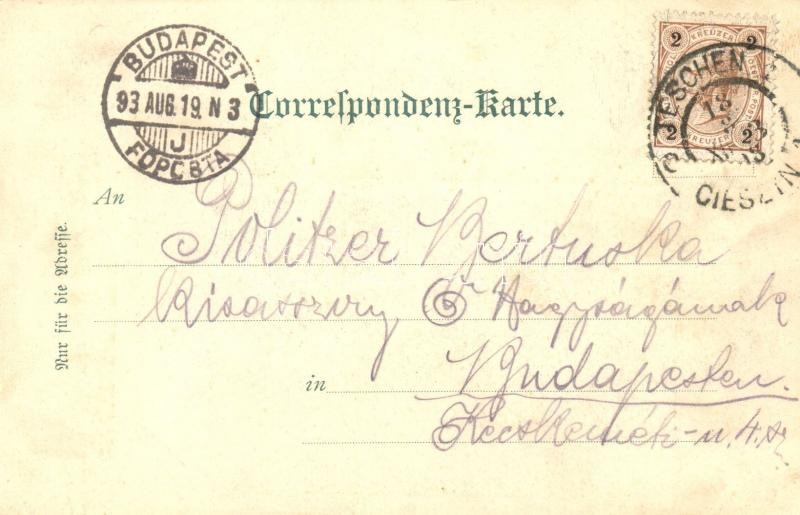 BUDAPEST
93 AUG. 19. N 3
J
FŐPOSTA
Correspondenz-Karte.
2 KREUZER 2
2 KREUZER 2
TESCHEN
18
CIESZYN
An
Politzer Bertuska
Kisasszony Ő Nagyságának
in Budapesten.
Kecskeméti-u. 4. sz
Nur für die Adresse.